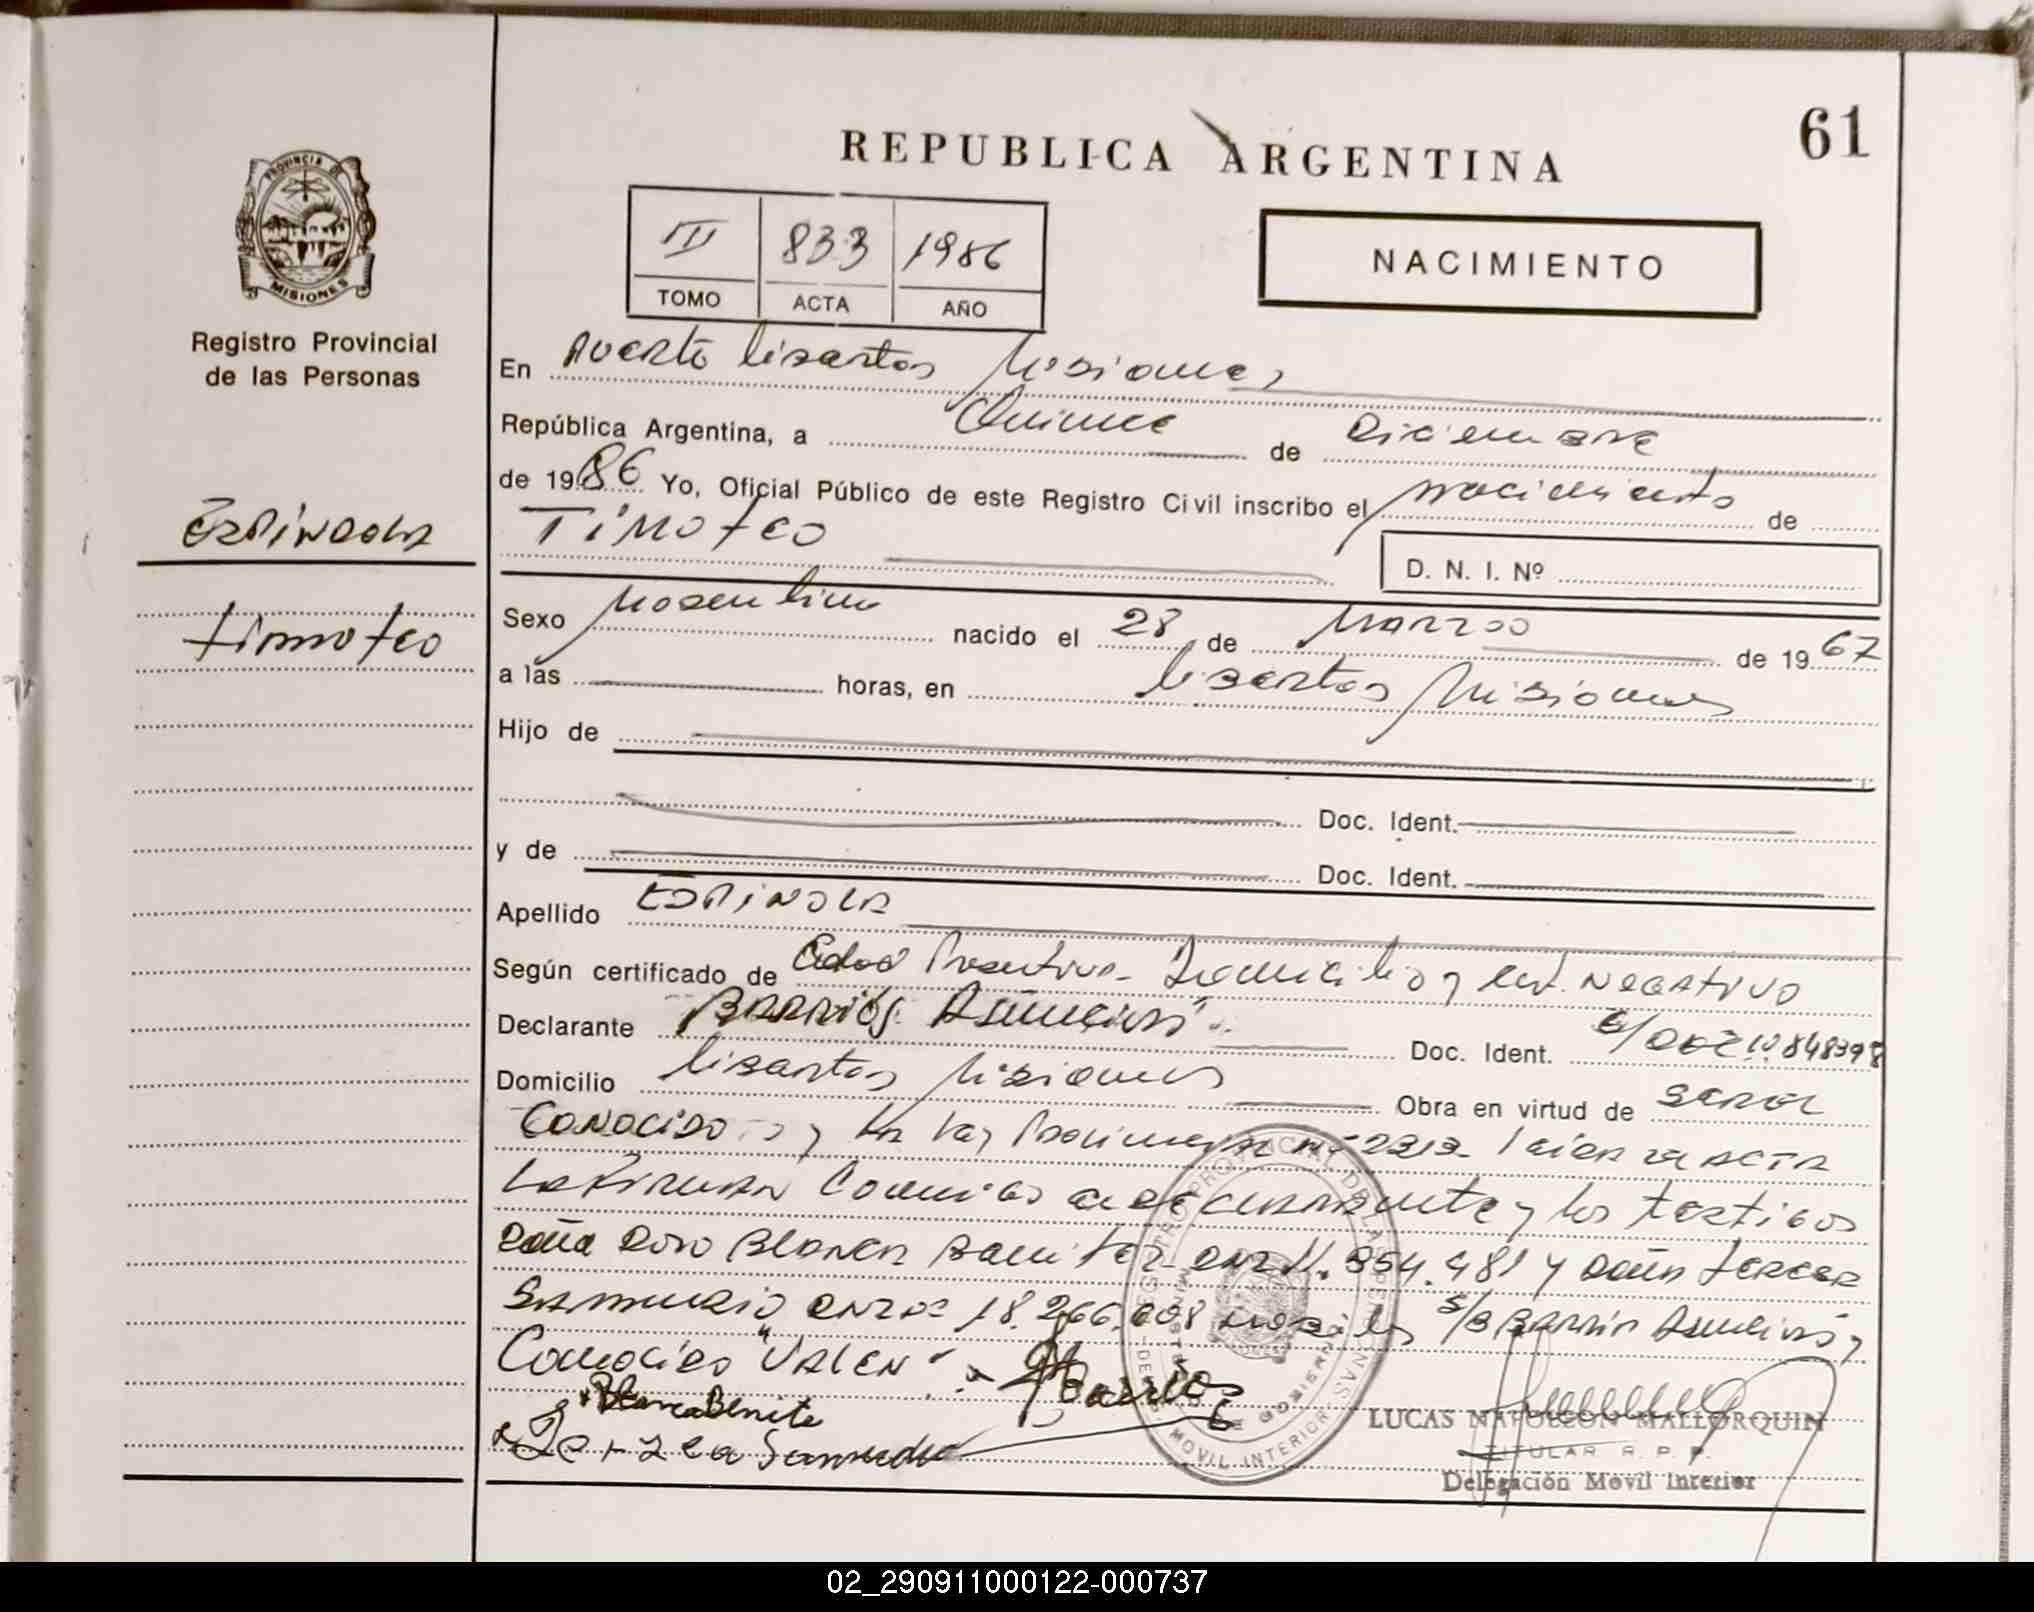 61
REPUBLICA ARGENTINA
PROVINCIA DE
MISIONES
Registro Provincial
de las Personas
III 833 1986
TOMO ACTA AÑO
NACIMIENTO
En Puerto Libertad Misiones,
República Argentina, a Quince de Diciembre
de 1986 Yo, Oficial Público de este Registro Civil inscribo el nacimiento de
TIMOTEO
D. N. I. Nº
ESPINDOLA
Timoteo
Sexo Masculino nacido el 28 de Marzo de 1967
a las horas, en Libertad Misiones
Hijo de
Doc. Ident.
y de Doc. Ident.
Apellido ESPINOLA
Según certificado de Edad Presuntiva - Domicilio y cert. NEGATIVO
Declarante BARRIOS Asunción Doc. Ident. 848398
Domicilio Libertad Misiones Obra en virtud de SEROL
CONOCIDO y la Ley Provincial Nº 2213. Leída el ACTA
La FIRMAN Conmigo el DECLARANTE y los testigos
Doña Blanca Benitez DNI 11.354.481 y Doña Teresa
Samudio DNI Nº 18.266.008 s/B BARRIOS Asunción y
Conocido "VALEN".
Barrios
Blanca Benite
Samudio
REGISTRO PROVINCIAL DE LAS PERSONAS
MINISTERIO DE GOBIERNO
MOVIL INTERIOR
LUCAS NAPOLEON MALLORQUIN
TITULAR R. P. P.
Delegación Movil Interior
02_290911000122-000737